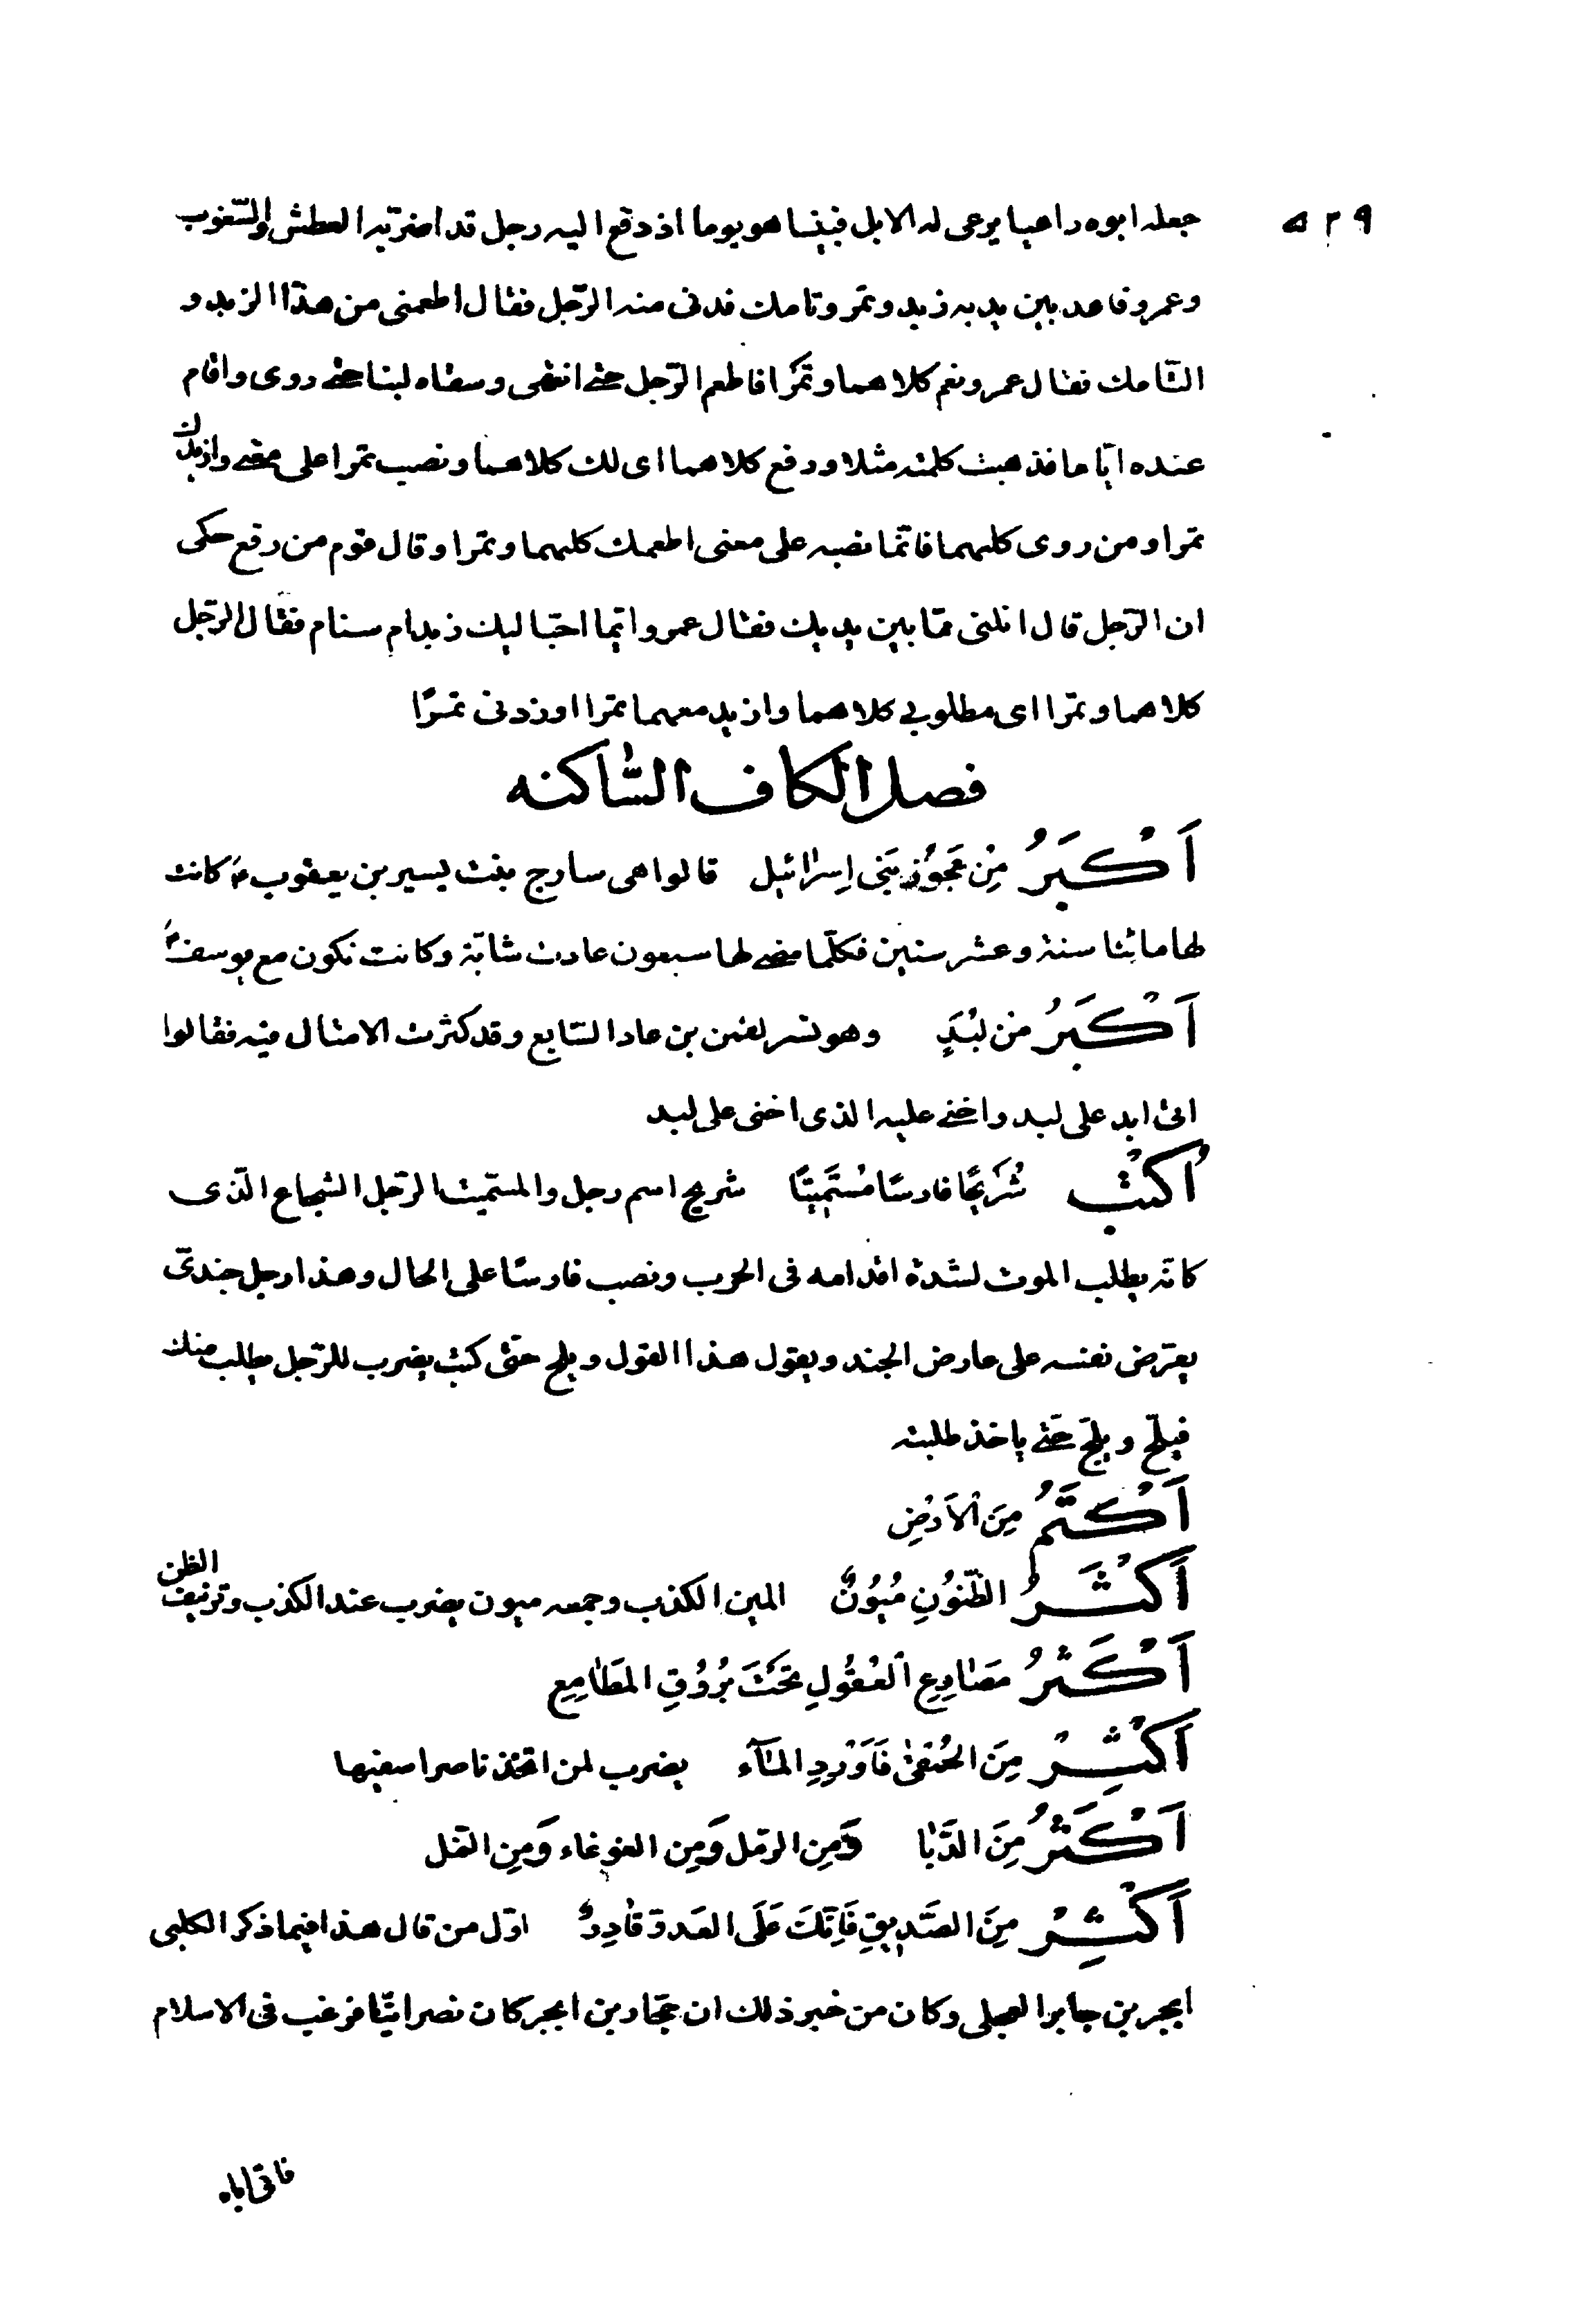 ٥٢٩
جعله ابوه راعيا يرعى له الابل فبينما هو يوما اذ دفع اليه رجل قد اضر به العطش والسّغوب
وعمرو قاعد بين يديه زبد وتمر وتامك فدنى منه الرّجل فقال اطعمنى من هذا الزبد و
التّامك فقال عمرو نعم كلاهما وتمرًا فاطعم الرّجل حتى انتهى وسقاه لبنا حتى روى واقام
عنده ايّاما فذهبت كلمته مثلا ورفع كلاهما اى لك كلاهما ونصب تمرا على معنى وازيدك
تمرا ومن روى كليهما فانّما نصبه على معنى اطعمك كليهما وتمرا وقال قوم من رفع حكى
ان الرّجل قال انلنى ممّا بين يديك فقال عمرو ايّما احبّ اليك زبد ام سنام فقال الرّجل
كلاهما وتمرا اى مطلوبى كلاهما وازيد معهما تمرا او زدنى تمرًا
فصل الكاف السّاكنه
اَكْبَرُ مِنْ عَجُوزِ بَنى اِسرائيل قالوا هى سارح بنت يسير بن يعقوب ع كانت
لها مائتا سنة وعشر سنين فكلّما مضى لها سبعون عادت شابّة وكانت تكون مع يوسف ع
اَكْبَرُ مِن لُبَدٍ وهو نسر لقمن بن عاد السّابع وقد كثرت الامثال فيه فقالوا
اتى ابد على لبد واخنى عليه الذى اخنى على لبد
اُكْتُبْ شُرَيحًا فارسًا مُسْتَميتًا شريح اسم رجل والمستميت الرّجل الشجاع الّذى
كانّه يطلب الموت لشدة اقدامه فى الحرب ونصب فارسًا على الحال وهذا رجل جندىّ
يعرّض نفسه على عارض الجند ويقول هذا القول ويلح حتّى كتب يضرب للرّجل يطلب منك
فيلحّ ويلجّ حتى ياخذ طلبته
اَكْتَمُ مِنَ الاَرْضِ
اَكْثَرُ الظُّنُونِ مُيُونٌ المين الكذب وجمعه ميون يضرب عند الكذب وتزييف الظن
اَكْثَرُ مَصَارِعِ الْعُقُولِ تَحْتَ بُرُوقِ المَطَامِعِ
اَكْثِرْ مِنَ الحَمْقى فَاَوْرِدِ المَاءَ يضرب لمن اتّخذ ناصرا سفيها
اَكْثَرُ مِنَ الدَّبَا وَمِن الرمل وَمِن الغوغاء وَمِن النمل
اَكْثِرْ مِنَ الصَّدِيقِ فَاِنَّكَ عَلَى العَدوّ قَادِرٌ اوّل من قال هذا فيما ذكر الكلبى
ابجر بن جابر العجلى وكان من خبر ذلك ان حجّار بن ابجر كان نصرانيّا فرغب فى الاسلام
فاتى اباه